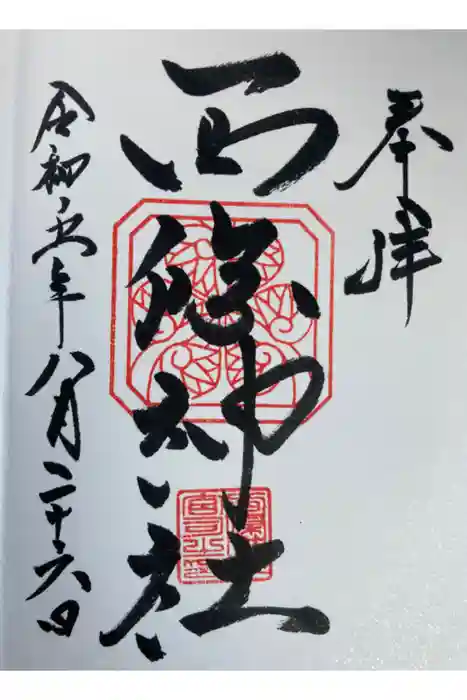 奉拝
西 神社
令和五年八月二十六日